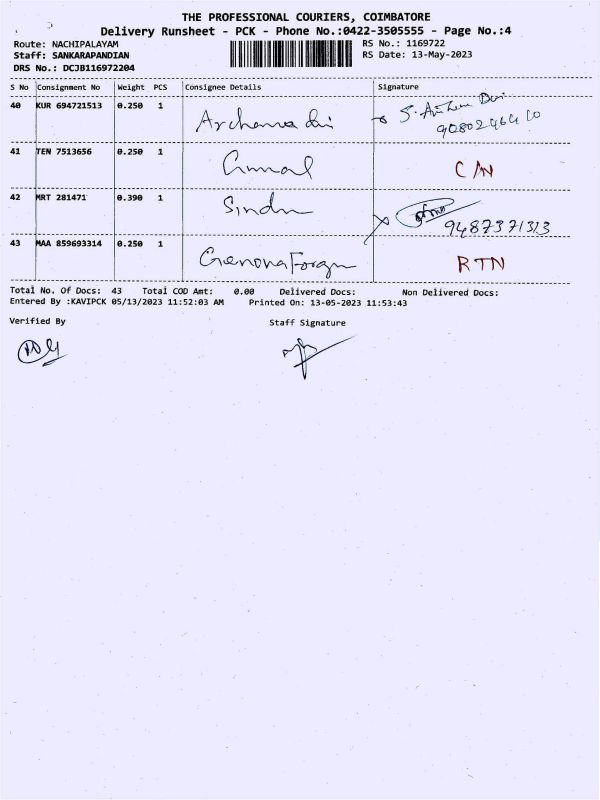 THE PROFESSIONAL COURIERS, COIMBATORE
Delivery Runsheet - PCK - Phone No.:0422-3505555 - Page No.:4
Route: NACHIPALAYAM
RS No.: 1169722
Staff: SANKARAPANDIAN
RS Date: 13-May-2023
DRS No.: DCJB116972204
S No Consignment No Weight PCS Consignee Details Signature
40 KUR 694721513 0.250 1 Archana
41 TEN 7513656 0.250 1 C/N
42 MRT 281471 0.390 1 Sindu 9487371313
43 MAA 859693314 0.250 1 RTN
Total No. Of Docs: 43 Total COD Amt: 0.00 Delivered Docs: Non Delivered Docs:
Entered By :KAVIPCK 05/13/2023 11:52:03 AM Printed On: 13-05-2023 11:53:43
Verified By Staff Signature